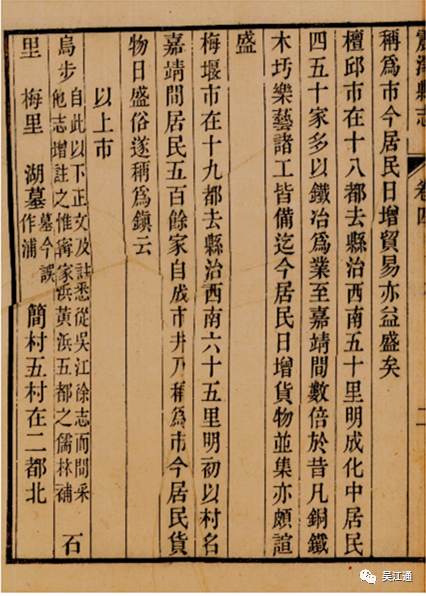 震澤縣志
卷四
二
稱爲市今居民日增貿易亦益盛矣
檀邱市在十八都去縣治西南五十里明成化中居民
四五十家多以鐵冶爲業至嘉靖間數倍於昔凡銅鐵
木圬樂藝諸工皆備迄今居民日增貨物並集亦頗諠
盛
梅堰市在十九都去縣治西南六十五里明初以村名
嘉靖間居民五百餘家自成市井乃稱爲市今居民貨
物日盛俗遂稱爲鎮云
以上市
烏步自此以下正文及註悉從吳江徐志而間采他志增註之惟甯家浜黃浜五都之儒林補 石
里 梅里 湖墓墓今誤作浦 簡村五村在二都北
吴江通